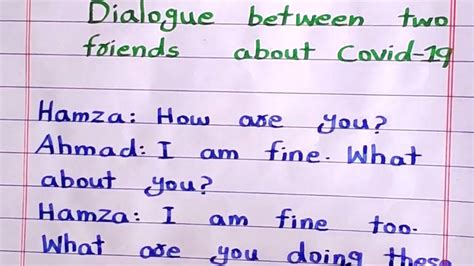 Dialogue between two
friends about Covid-19
Hamza: How are you?
Ahmad: I am fine. What
about you?
Hamza: I am fine too.
What are you doing these